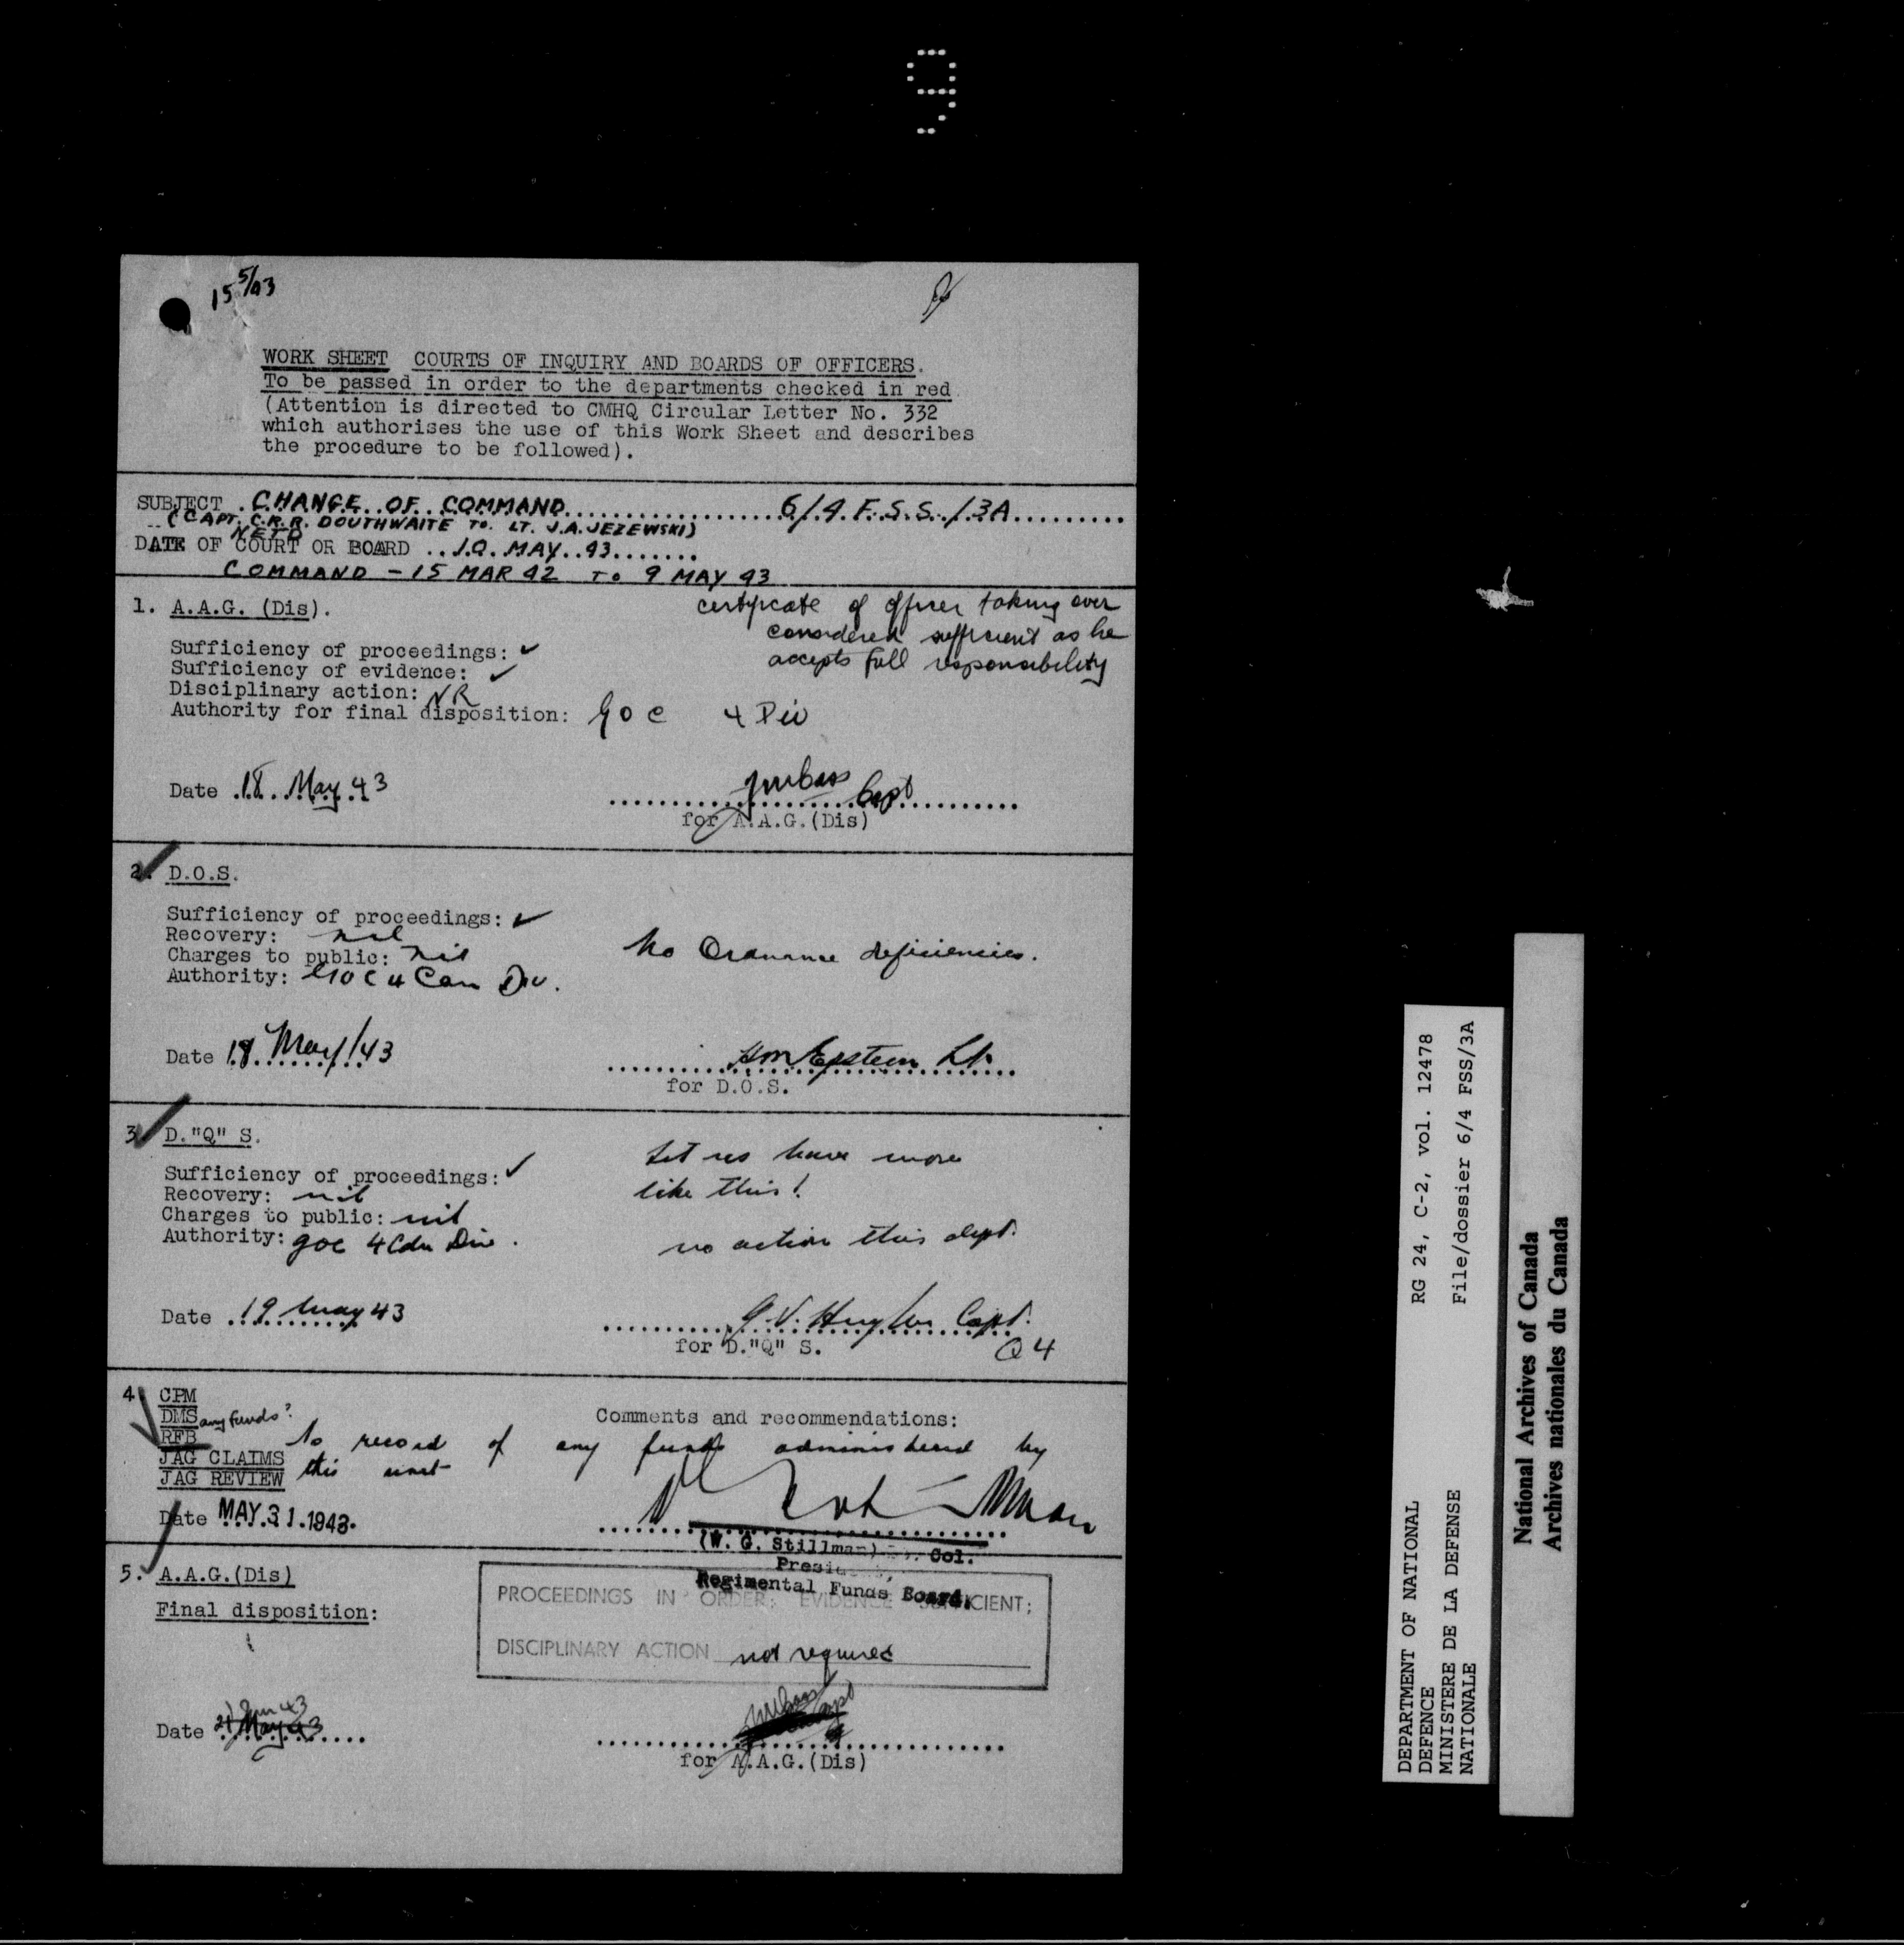 9
15 5/43
WORK SHEET COURTS OF INQUIRY AND BOARDS OF OFFICERS.
To be passed in order to the departments checked in red
(Attention is directed to CMHQ Circular Letter No. 332
which authorises the use of this Work Sheet and describes
the procedure to be followed).
SUBJECT . CHANGE OF COMMAND 6/4 F.S.S./3A
(CAPT. C.R.R. DOUTHWAITE TO LT. J.A. JEZEWSKI)
NETD
DATE OF COURT OR BOARD .. 10 MAY 43
COMMAND - 15 MAR 42 TO 9 MAY 43
1. A.A.G. (Dis).
certificate of officer taking over
considered sufficient as he
accepts full responsibility
Sufficiency of proceedings: ✓
Sufficiency of evidence: ✓
Disciplinary action: NR
Authority for final disposition: GOC 4 Div
Date 18 May 43
Capt
for A.A.G.(Dis)
2. D.O.S.
Sufficiency of proceedings: ✓
Recovery: nil
Charges to public: nil
Authority: GOC 4 Can Div.
No Ordnance deficiencies.
Date 18 May/43
HM Epstein Lt.
for D.O.S.
3. D."Q" S.
Let us have more
like this!
Sufficiency of proceedings: ✓
Recovery: nil
Charges to public: nil
Authority: GOC 4 Cdn Div.
no action this dept.
Date 19 May 43
Capt.
for D."Q" S.
Q4
4. CPM
DMS any funds?
RFB
JAG CLAIMS
JAG REVIEW
Comments and recommendations:
No record of any funds administered by
this unit
Date MAY 31 1943.
(W. G. Stillman) Col.
Regimental Funds Board.
5. A.A.G.(Dis)
Final disposition:
PROCEEDINGS IN ORDER: EVIDENCE SUFFICIENT;
DISCIPLINARY ACTION not required
Date Jun 43
for A.A.G.(Dis)
DEPARTMENT OF NATIONAL
DEFENCE
MINISTERE DE LA DEFENSE
NATIONALE
RG 24, C-2, vol. 12478
File/dossier 6/4 FSS/3A
National Archives of Canada
Archives nationales du Canada